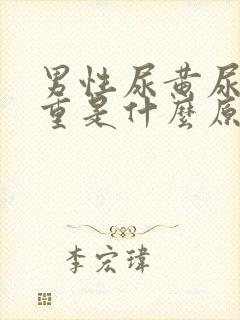 男性尿黄尿
重是什麼原
李宏瑋